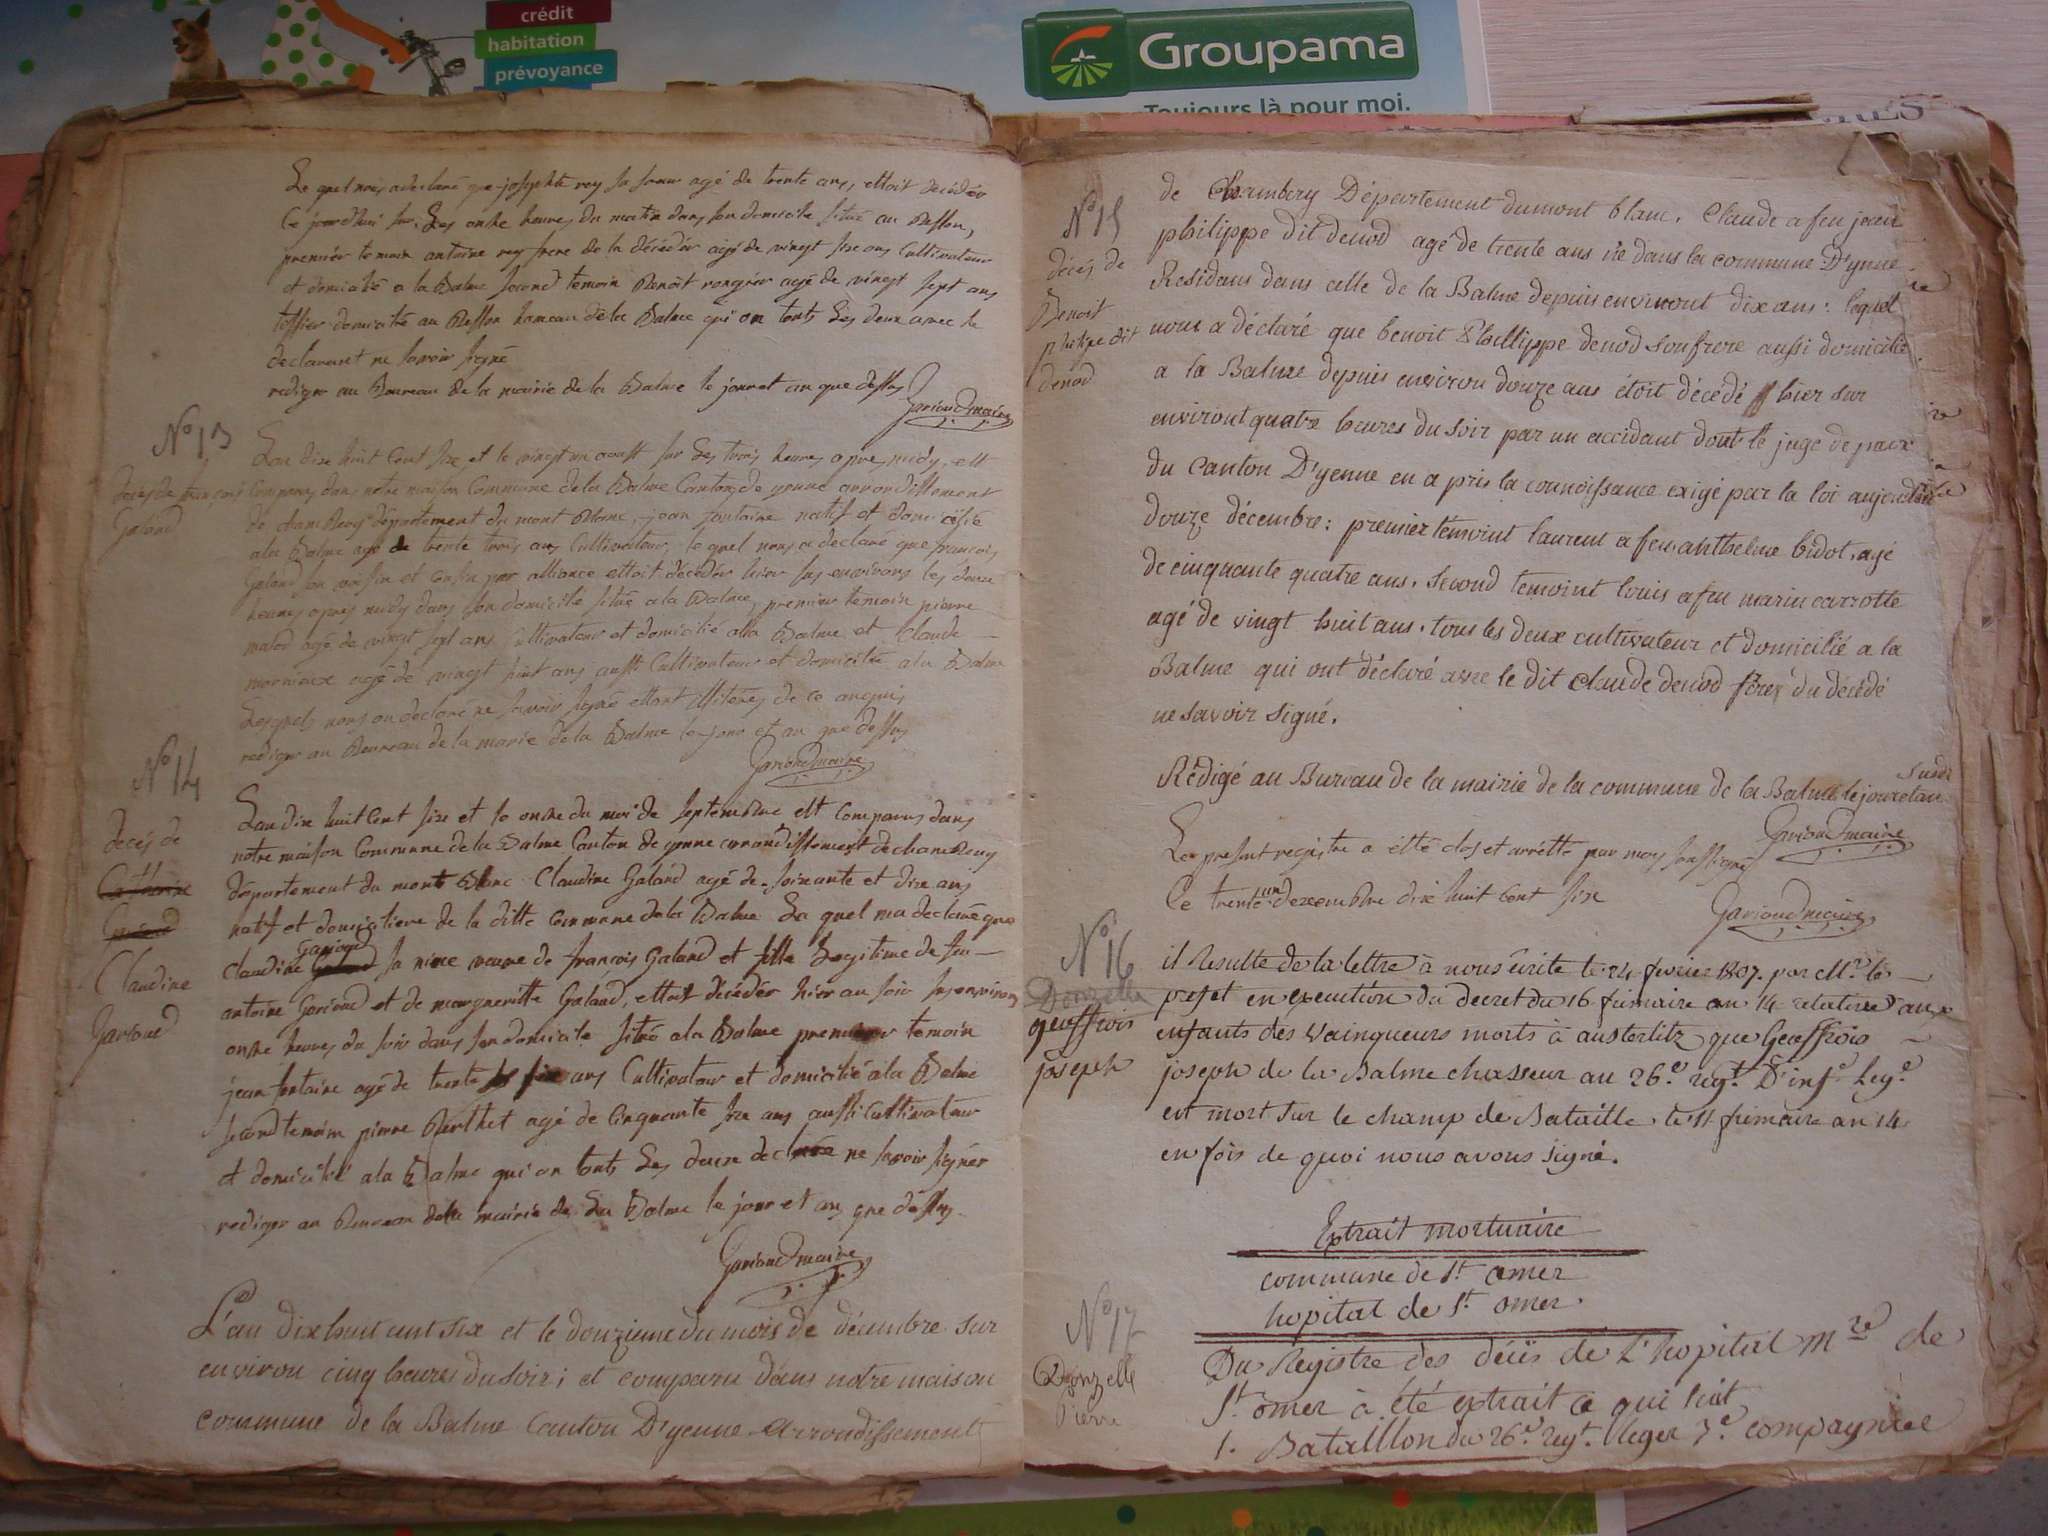 crédit
habitation
prévoyance
Groupama
Toujours là pour moi.
Le quel nous a declaré que josephte rey sa sœur agé de trente ans, ettoit décédéo
Ce jourd'hui sur Les onhe heures du matin dans son domicile situé au
premiér temoin antoine rey frere de la décédéo agé de vingt six ans Cultivateur
et domicilié a la Balme second temoin Benoit rengiér agé de vingt sept ans
domicilié au hameau de la Balme qui on touts Les deux avec le
declarant ne savoir signé
rediger au Boureau de la mairie de la Balme le jour et an que dessus
Garioud maire
No 13
décés de francois
Galand
Lan dix huit Cent six et le vingt un aoust sur Les trois heures apres midy, est
Comparus dans notre maison Commune de la Balme Canton de yenne arrondissement
de chambery département du mont Blanc, jean fontaine natif et domicilié
ala Balme agé de trente trois ans Cultivateur, le quel nous a declaré que francois
Galand son voisin et cousin par alliance ettoit décédér hier sus environs les douze
heures apres midy dans son domicile situé ala Balme, premier temoin pierre
agé de vingt sept ans Cultivateur et domicilié ala Balme et Claude
agé de vingt huit ans aussi Cultivateur et domicilié ala Balme
Lesquels nous on declaré ne savoir signé ettant de ce anquis
rediger au Boureau de la marie de la Balme le jour et an que dessus
Garioud maire
No 14
décés de
Catherine
Claudine
Garioud
Lan dix huit Cent six et le onhe du moi de septembre est Comparus dans
notre maison Commune de la Balme Canton de yenne arrondissement de chambery
département du mont Blanc Claudine Galand agé de soixante et dix ans
natif et domiciliere de la ditte commune de la Balme La quel ma declaré que
Garioud
Claudine Galand sa niece veuve de françois Galand et fille Legitime de feu
antoine Gorioud et de margueritte Galand, ettoit décédér hier au soir sus environs
onhe heures du soir dans son domicile situé ala Balme premier temoin
jean fontaine agé de trente six ans Cultivateur et domicilié ala Balme
second temoin pierre Berthet agé de Cinquante six ans aussi Cultivateur
et domicilié ala Balme qui on touts Les deux declaré ne savoir signér
rediger au Boureau de la mairie de La Balme le jour et an que déssus
Gariond maire
L'an dix huit cent six et le douzieme du mois de décembre sur
environ cinq heures du soir; et comparu dans notre maison
commune de la Balme Canton D'yenne arrondissement
No 15
décés de
Benoit
philipe dit
denod
de Chambery Département du mont blanc. Claude a feu jean
philippe dit denod agé de trente ans né dans la commune D'yenne
Residans dans celle de la Balme depuis environt dix ans: lequel
nous a déclaré que benoit Phillippe denod son frere aussi domicilié
a la Balme depuis environ douze ans étoit décédé hier sur
environt quatre heures du soir par un accidant dont le juge de paix
du Canton D'yenne en a pris la connoissance exigé par la loi aujourd'hui
douze décembre: premier témoint laurent a feu anthelme bidot, agé
de cinquante quatre ans, second temoint louis a feu marin carrotte
agé de vingt huit ans, tous les deux cultivateur et domicilié a la
Balme qui ont déclaré avec le dit claude denod frere du décédé
ne savoir signé.
susdi
Rédigé au Bureau de la mairie de la commune de la Balme le jour et an
Gariond maire
Le present registre a étté clos et arretté par moy soussigné
un
Ce trente decembre dix huit cent six
Gariond maire
No 16
Donzelle
geoffrois
joseph
il Resulte de la lettre à nous écrite le 24 fevrier 1807. par Mr. le
prefet en execution du decret du 16 frimaire an 14 relative aux
enfants des Vainqueurs morts à austerlitz que Geoffrois
joseph de la Balme chasseur au 26.e regt. D'infe. Lege.
est mort sur le champ de Bataille le 11 frimaire an 14
en fois de quoi nous avons signé.
Extrait mortuaire
commune de St. omer
hopital de St. omer.
No 17
Donzelle
Pierre
Du Registre des décès de L'hopital Mre de
St. omer à été extrait ce qui suit
1. Bataillon du 26.e regt. leger 7.e compagnie